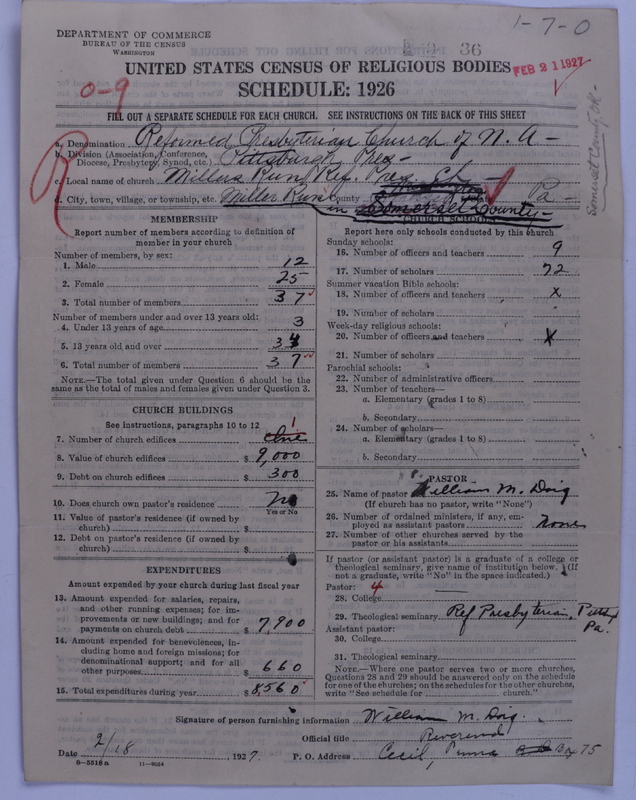 1-7-0
DEPARTMENT OF COMMERCE
BUREAU OF THE CENSUS
WASHINGTON
36
UNITED STATES CENSUS OF RELIGIOUS BODIES
FEB 21 1927
SCHEDULE: 1926
0-9
FILL OUT A SEPARATE SCHEDULE FOR EACH CHURCH. SEE INSTRUCTIONS ON THE BACK OF THIS SHEET
a. Denomination Reformed Presbyterian Church of N. A-
b. Division (Association, Conference, Diocese, Presbytery, Synod, etc.) Pittsburgh Pres-
c. Local name of church Millers Run Ref. Pres. Ch-
d. City, town, village, or township, etc. Miller Run County Pa-
in Somerset County-
Somerset County
MEMBERSHIP
Report number of members according to definition of member in your church
Number of members, by sex:
1. Male 12
2. Female 25
3. Total number of members 37
Number of members under and over 13 years old:
4. Under 13 years of age 3
5. 13 years old and over 34
6. Total number of members 37
NOTE.—The total given under Question 6 should be the same as the total of males and females given under Question 3.
CHURCH BUILDINGS
See instructions, paragraphs 10 to 12
7. Number of church edifices One 1
8. Value of church edifices $ 9,000
9. Debt on church edifices $ 300
10. Does church own pastor's residence No
Yes or No
11. Value of pastor's residence (if owned by church) $
12. Debt on pastor's residence (if owned by church) $
EXPENDITURES
Amount expended by your church during last fiscal year
13. Amount expended for salaries, repairs, and other running expenses; for improvements or new buildings; and for payments on church debt $ 7,900
14. Amount expended for benevolences, including home and foreign missions; for denominational support; and for all other purposes $ 660
15. Total expenditures during year $ 8560
CHURCH SCHOOLS
Report here only schools conducted by this church
Sunday schools:
16. Number of officers and teachers 9
17. Number of scholars 72
Summer vacation Bible schools:
18. Number of officers and teachers x
19. Number of scholars
Week-day religious schools:
20. Number of officers and teachers x
21. Number of scholars
Parochial schools:
22. Number of administrative officers
23. Number of teachers—
a. Elementary (grades 1 to 8)
b. Secondary
24. Number of scholars—
a. Elementary (grades 1 to 8)
b. Secondary
PASTOR
25. Name of pastor William M. Doig
(If church has no pastor, write "None")
26. Number of ordained ministers, if any, employed as assistant pastors None
27. Number of other churches served by the pastor or his assistants
If pastor (or assistant pastor) is a graduate of a college or theological seminary, give name of institution below. (If not a graduate, write "No" in the space indicated.)
Pastor: 4
28. College
29. Theological seminary Ref. Presbyterian, Pittsb Pa.
Assistant pastor:
30. College
31. Theological seminary
NOTE.—Where one pastor serves two or more churches, Questions 28 and 29 should be answered only on the schedule for one of the churches; on the schedules for the other churches, write "See schedule for church."
Signature of person furnishing information William M. Doig.
Official title Reverend
Date 2/18, 1927. P. O. Address Cecil, Penna Box 75
8-5518a 11-9054